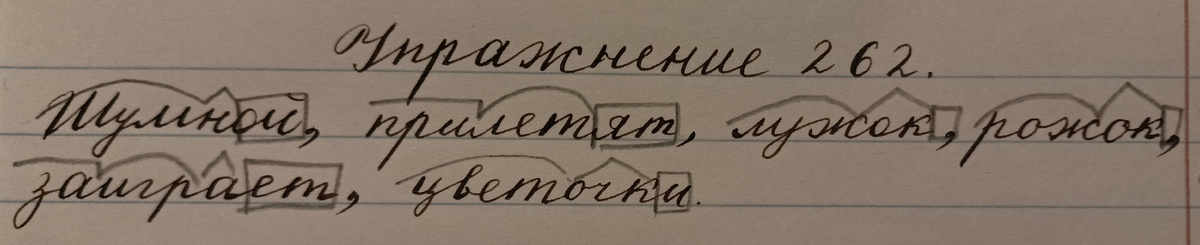 Упражнение 262.
Шумной, прилетят, лужок, рожок,
заиграет, цветочки.